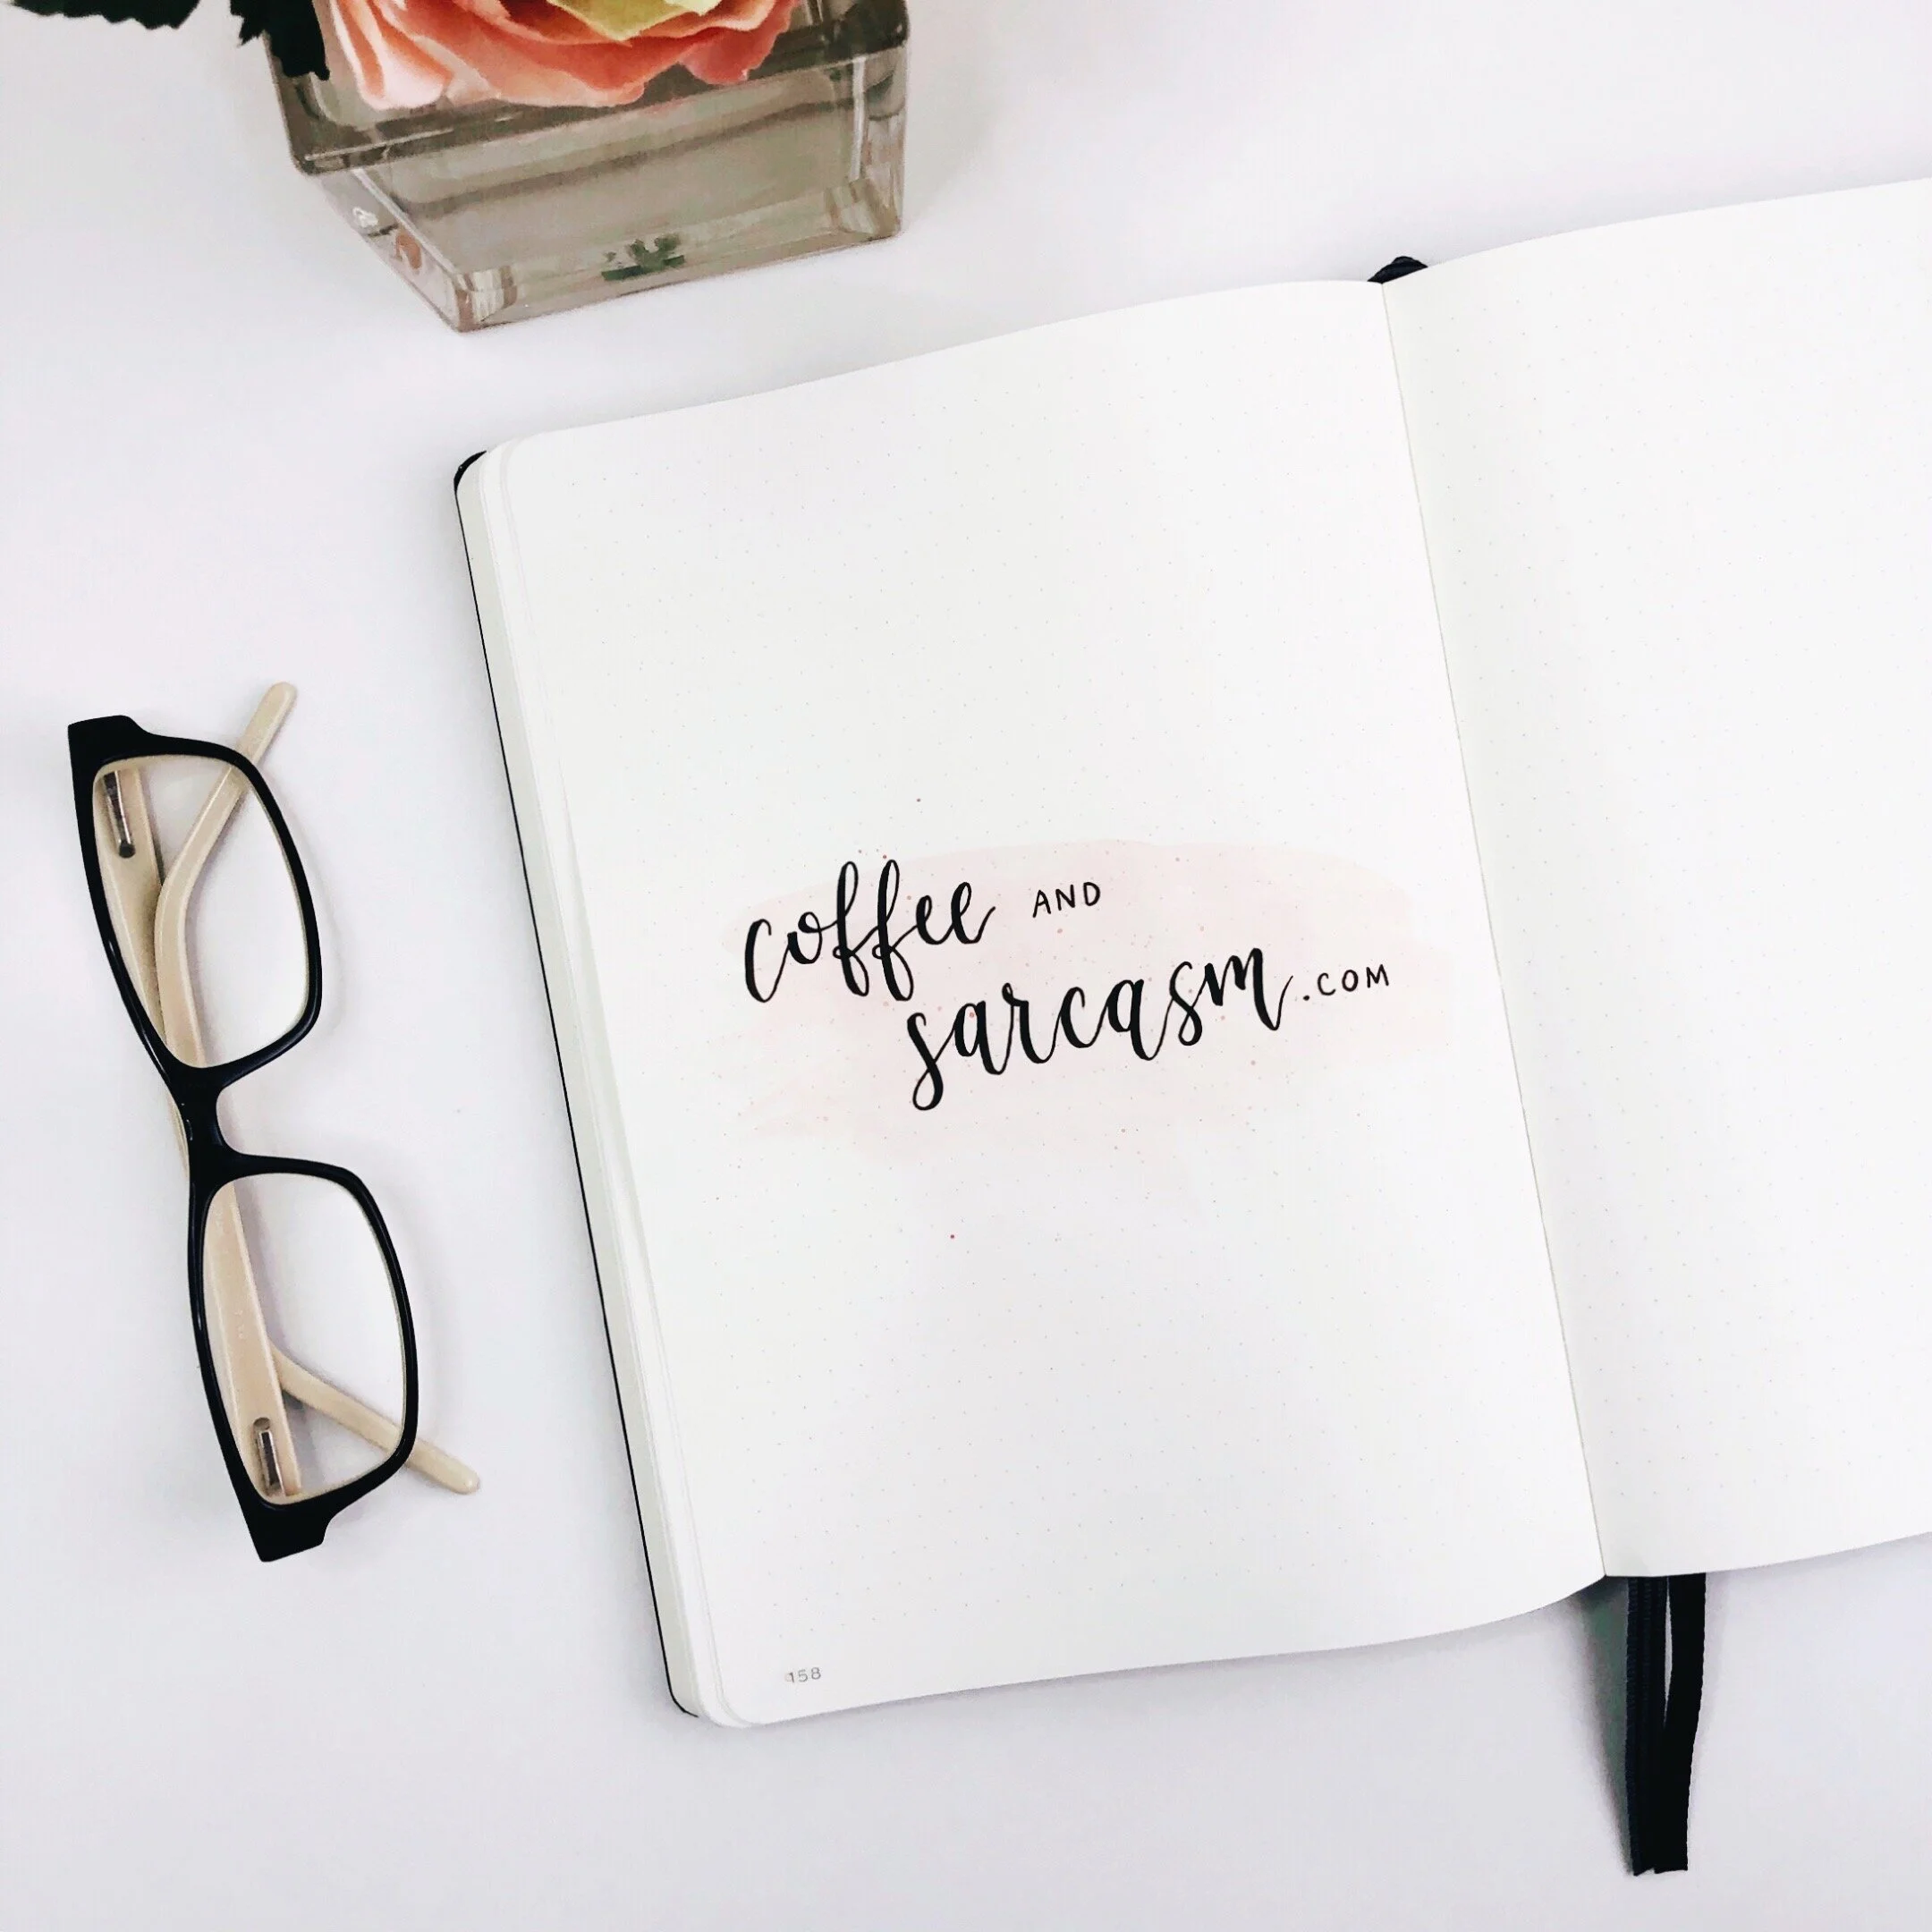 coffee AND
sarcasm.COM
158